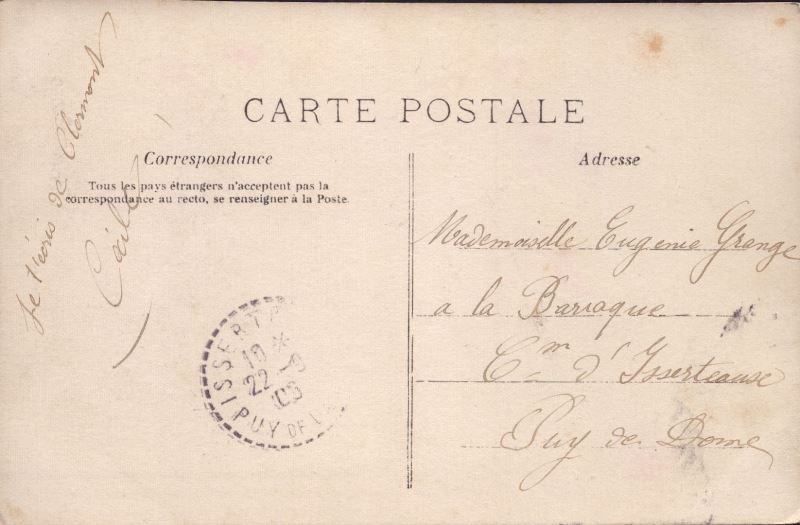 CARTE POSTALE
Correspondance
Tous les pays étrangers n'acceptent pas la
correspondance au recto, se renseigner à la Poste.
Je t'écris de Clermont
Adresse
Mademoiselle Eugenie Grange
a la Barraque
Cm d'Isserteause
Puy de Dome
ISSERT
10 *
22 -
PUY DE